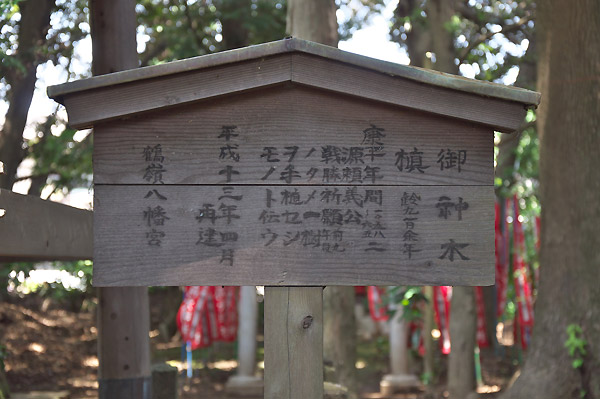 御神木
槙 齢九百余年
康平年間
二
源頼義公
戦勝祈願
ノタメ一樹
ヲ手植セシ
モノト伝ウ
平成十三年四月
再建
鶴嶺八幡宮